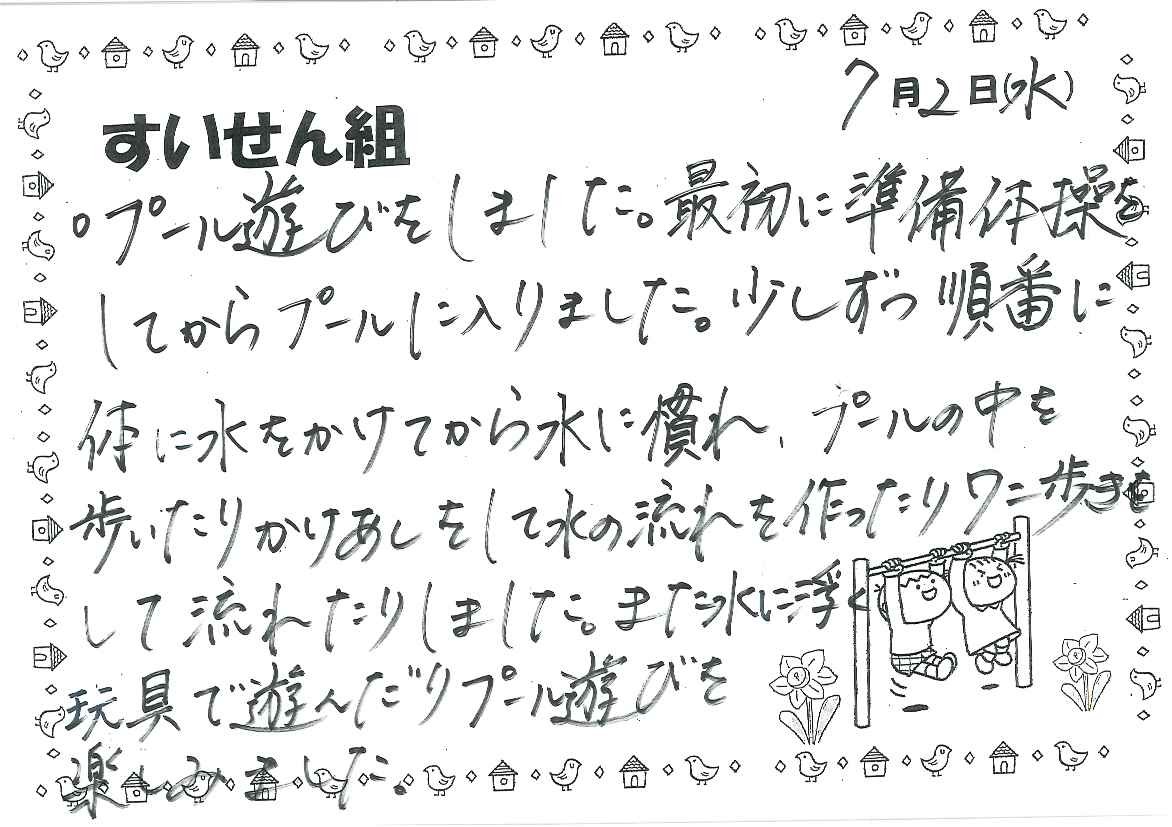 7月2日(水)
すいせん組
○プール遊びをしました。最初に準備体操を
してからプールに入りました。少しずつ順番に
体に水をかけてから水に慣れ、プールの中を
歩いたりかけあしをして水の流れを作ったりワニ歩きを
して流れたりしました。また水に浮く
玩具で遊んだりプール遊びを
楽しみました。